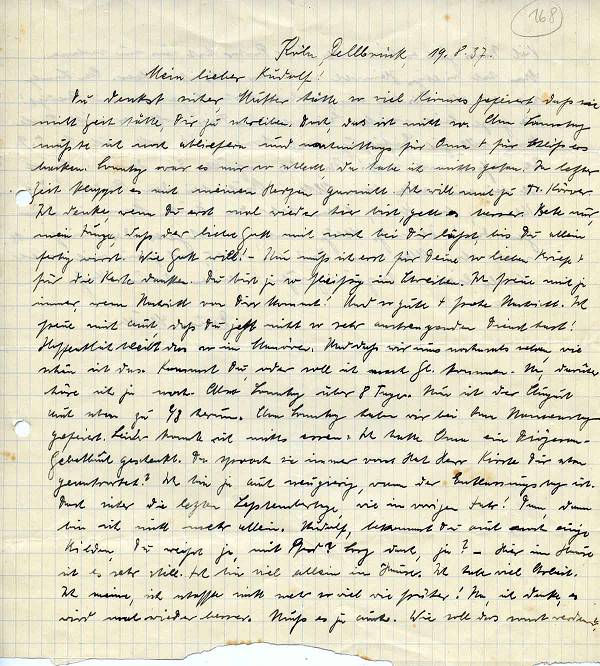 168
Köln Dellbrück, 19.8.37.
Mein lieber Rudolf!
Du denkst sicher Mutter hätte so viel Kirmes gefeiert, daß sie
nicht Zeit hätte, Dir zu schreiben. Doch, das ist nicht so. Am Samstag
mußte ich noch abliefern und nachmittags für Oma + für
backen. Sonntag war es mir so schlecht, da habe ich nichts getan. In letzter
Zeit klappt es mit meinem Herzen garnicht. Ich will mal zu Dr. Körver.
Ich denke, wenn Du erst mal wieder hier bist, geht es besser. Bete nur,
mein Junge, daß der liebe Gott mich noch bei Dir läßt, bis Du allein
fertig wirst. Wie Gott will! – Nun muß ich erst für Deine so lieben Briefe +
für die Karte danken. Du bist ja so fleißig im Schreiben. Ich freue mich ja
immer, wenn Nachricht von Dir kommt! Und so gute + frohe Nachricht. Ich
freue mich auch daß Du jetzt nicht so sehr anstrengenden Dienst hast!
Hoffentlich bleibt das so im Manöver. Und daß wir uns nochmals sehen, wie
schön ist das. Kommst Du, oder soll ich nach Gl. kommen. Na, darüber
höre ich ja noch. Also Sonntag über 8 Tage. Nun ist der August
auch schon zu 2/3 herum. Am Sonntag haben wir bei Oma Namenstag
gefeiert. Leider konnte ich nichts essen. Ich hatte Oma ein Diözesan-
Gebetbuch geschenkt. Da sprach sie immer von. Hat Herr Dir schon
geantwortet? Ich bin ja auch neugierig, wann der Entlassungstag ist.
Doch sicher die letzten Septembertage, wie im vorigen Jahr! Dann, dann
bin ich nicht mehr allein. Rudolf, bekommst Du auch noch einige
Bilder, Du weißt ja, mit Pferd? Sorg doch, ja? – Hier im Hause
ist es sehr still. Ich bin viel allein im Hause. Ich habe viel Arbeit.
Ich meine, ich schaffte nicht mehr so viel wie früher! Na, ich denke, es
wird mal wieder besser. Muß es ja auch. Wie soll das sonst werden?